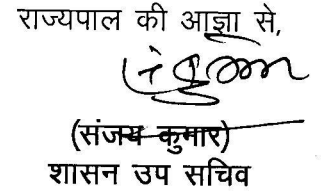 राज्यपाल की आज्ञा से,
(संजय कुमार)
शासन उप सचिव